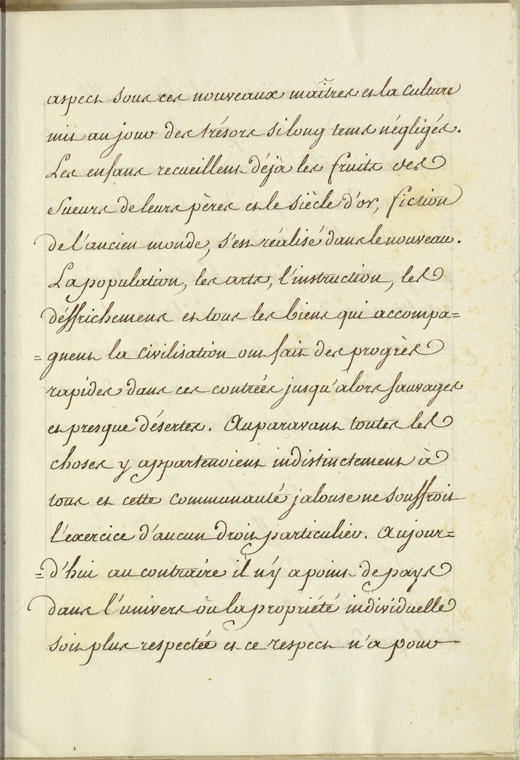 aspect sous ces nouveaux maîtres et la culture
mit au jour des trésors si long tems négligés.
Les enfans recueillent déja les fruits des
Sueurs de leurs pères et le siècle d'or, fiction
de l'ancien monde, s'est réalisé dans le nouveau.
La population, les arts, l'instruction, les
défrichemens et tous les biens qui accompa=
=gnent la civilisation ont fait des progrès
rapides dans ces contrées jusqu'alors sauvages
et presque désertes. Auparavant toutes les
choses y appartenoient indistinctement à
tous et cette communauté jalouse ne souffroit
l'exercice d'aucun droit particulier. Aujour=
=d'hui au contraire il n'y a point de pays
dans l'univers où la propriété individuelle
soit plus respectée et ce respect n'a pour